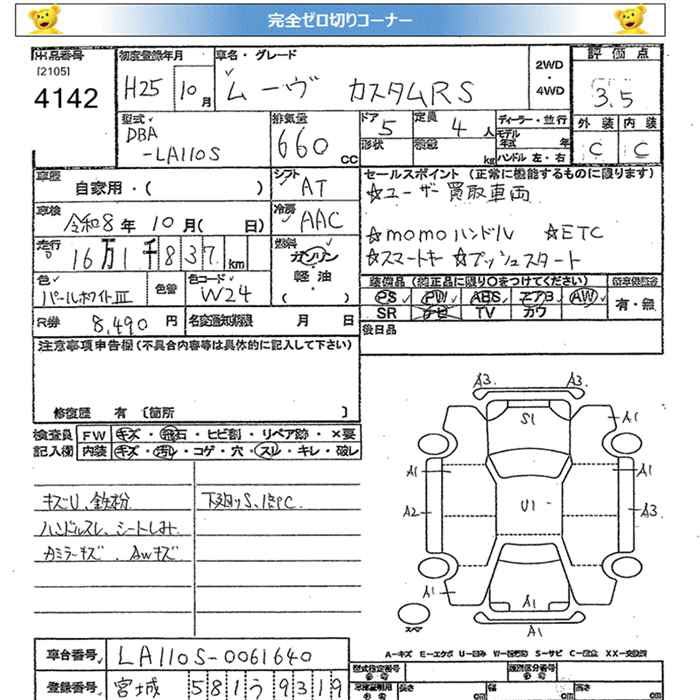 完全ゼロ切りコーナー
出品番号
[2105]
4142
初度登録年月
H25 10月
車名・グレード
ムーヴ カスタムRS
2WD
・
4WD
評価点
3.5
外装 内装
C C
型式
DBA
-LA110S
排気量
660 cc
ドア 5
定員 4 人
形状
積載 kg
ディーラー・並行
モデル
年式 年
ハンドル 左・右
車歴
自家用・( )
シフト
AT
車検
令和8年 10月( 日)
冷房
AAC
走行
16万1千837 km
燃料
ガソリン
・
軽油
( )
色
パールホワイトⅢ
色替
色コード
W24
R券
8,490 円
名変通知期限 月 日
セールスポイント (正常に機能するものに限ります)
☆ユーザー買取車両
☆momoハンドル ☆ETC
☆スマートキー ☆プッシュスタート
装備品 (純正品に限り○をつけてください)
PS PW ABS エアB AW
SR ナビ TV カワ
有・無
後日品
注意事項申告欄(不具合内容等は具体的に記入して下さい)
修復歴 有 〔箇所 〕
検査員
記入欄
FW キズ・飛石・ヒビ割・リペア跡・×要
内装 キズ・汚れ・コゲ・穴・スレ・キレ・破レ
キズU、鉄粉
ハンドルスレ、シートしみ
カミラーキズ、AWキズ
下廻りS、
A3 A3
S1
A1
A1 A1
A2 U1 A3
A1 A1
A1
A1
スペア
A-キズ E-エクボ U-凹み W-補修跡 S-サビ C-腐食 XX-交換済
車台番号
LA110S-0061640
登録番号
宮城 581う9319
型式指定番号
類別区分番号
長さ cm
幅 cm
高さ cm